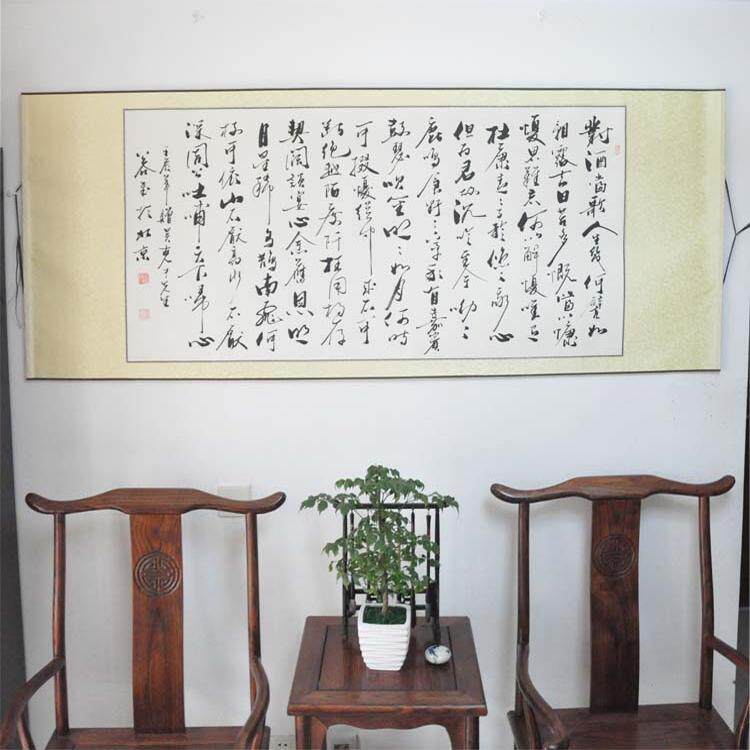 對酒當歌人生幾何譬如
朝露去日苦多慨當以慷
憂思難忘何以解憂唯有
杜康青々子衿悠々我心
但為君故沉吟至今呦々
鹿鳴食野之苹我有嘉賓
鼓瑟吹笙明々如月何時
可掇憂從中來不可
斷絕越陌度阡枉用相存
契闊談宴心念舊恩明
月星稀烏鵲南飛何
枝可依山不厭高水不厭
深周公吐哺天下歸心
壬辰年贈黃克先生
於北京